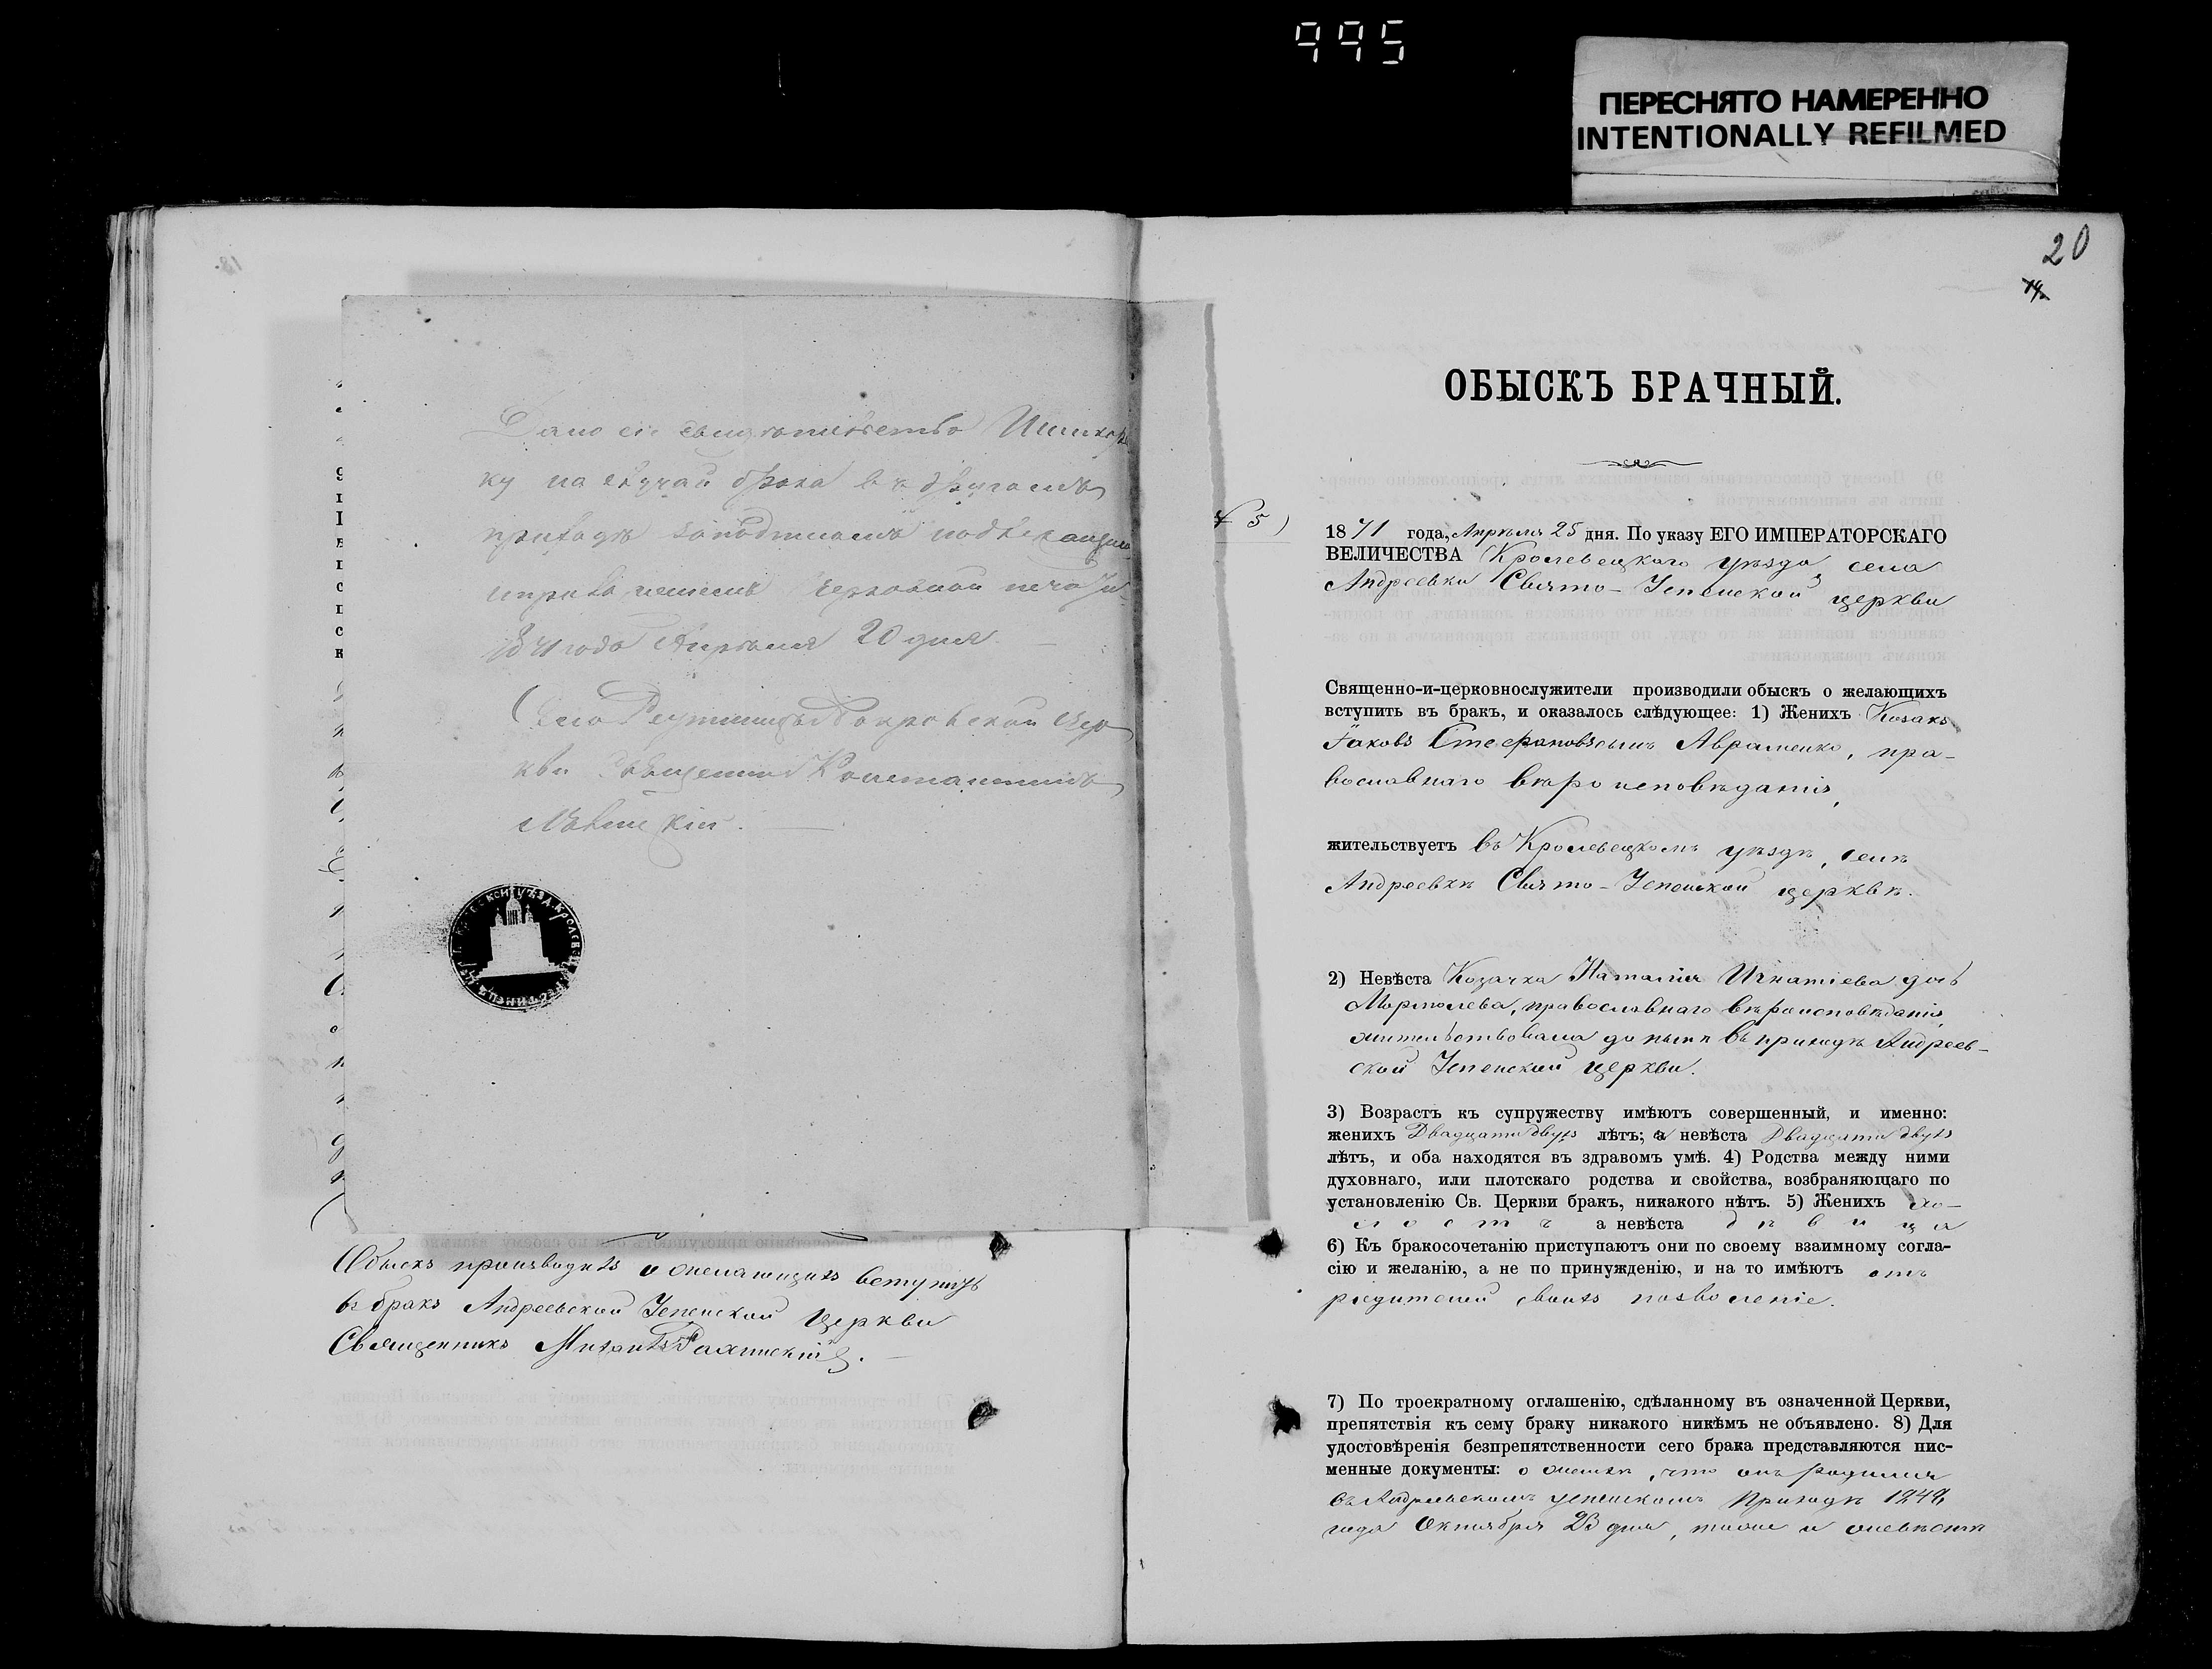 995
ПЕРЕСНЯТО НАМЕРЕННО
INTENTIONALLY REFILMED
20
Дано сіе свидѣтельство
ку на случай брака въ другомъ
приходѣ за подписомъ
церковной печати
1871 года Апрѣля 20 дня
Село Реутинцы Покровской Цер
кви Священник Константинъ
Обыскъ производилъ о желающихъ вступить
въ бракъ Андреевской Успенской Церкви
Священникъ
ОБЫСКЪ БРАЧНЫЙ.
№ 5)
1871 года, Апрѣля 25 дня. По указу ЕГО ИМПЕРАТОРСКАГО
ВЕЛИЧЕСТВА Кролевецкаго уѣзда села
Андреевки Свято-Успенской церкви
Священно-и-церковнослужители производили обыскъ о желающихъ
вступить въ бракъ, и оказалось слѣдующее: 1) Женихъ Козакъ
Іаковъ Стефановъ сынъ Авраменко, пра-
вославнаго вѣроисповѣданія,
жительствуетъ въ Кролевецкомъ уѣздѣ, селѣ
Андреевкѣ Свято-Успенской церквѣ.
2) Невѣста Козачка Наталія Игнатіева дочь
православнаго вѣроисповѣданія,
жительствовала до нынѣ въ приходѣ Андреев-
ской Успенской церкви.
3) Возрастъ къ супружеству имѣютъ совершенный, и именно:
женихъ Двадцати двухъ лѣтъ; а невѣста Двадцати двухъ
лѣтъ, и оба находятся въ здравомъ умѣ. 4) Родства между ними
духовнаго, или плотскаго родства и свойства, возбраняющаго по
установленію Св. Церкви бракъ, никакого нѣтъ. 5) Женихъ хо-
лостъ а невѣста дѣвица
6) Къ бракосочетанію приступаютъ они по своему взаимному согла-
сію и желанію, а не по принужденію, и на то имѣютъ отъ
родителей своихъ позволеніе.
7) По троекратному оглашенію, сдѣланному въ означенной Церкви,
препятствія къ сему браку никакого никѣмъ не объявлено. 8) Для
удостовѣренія безпрепятственности сего брака представляются пис-
менные документы: о женихѣ, что онъ родился
въ Андреевскомъ Успенскомъ Приходѣ
года Октября 23 дня, также и о невѣстѣ